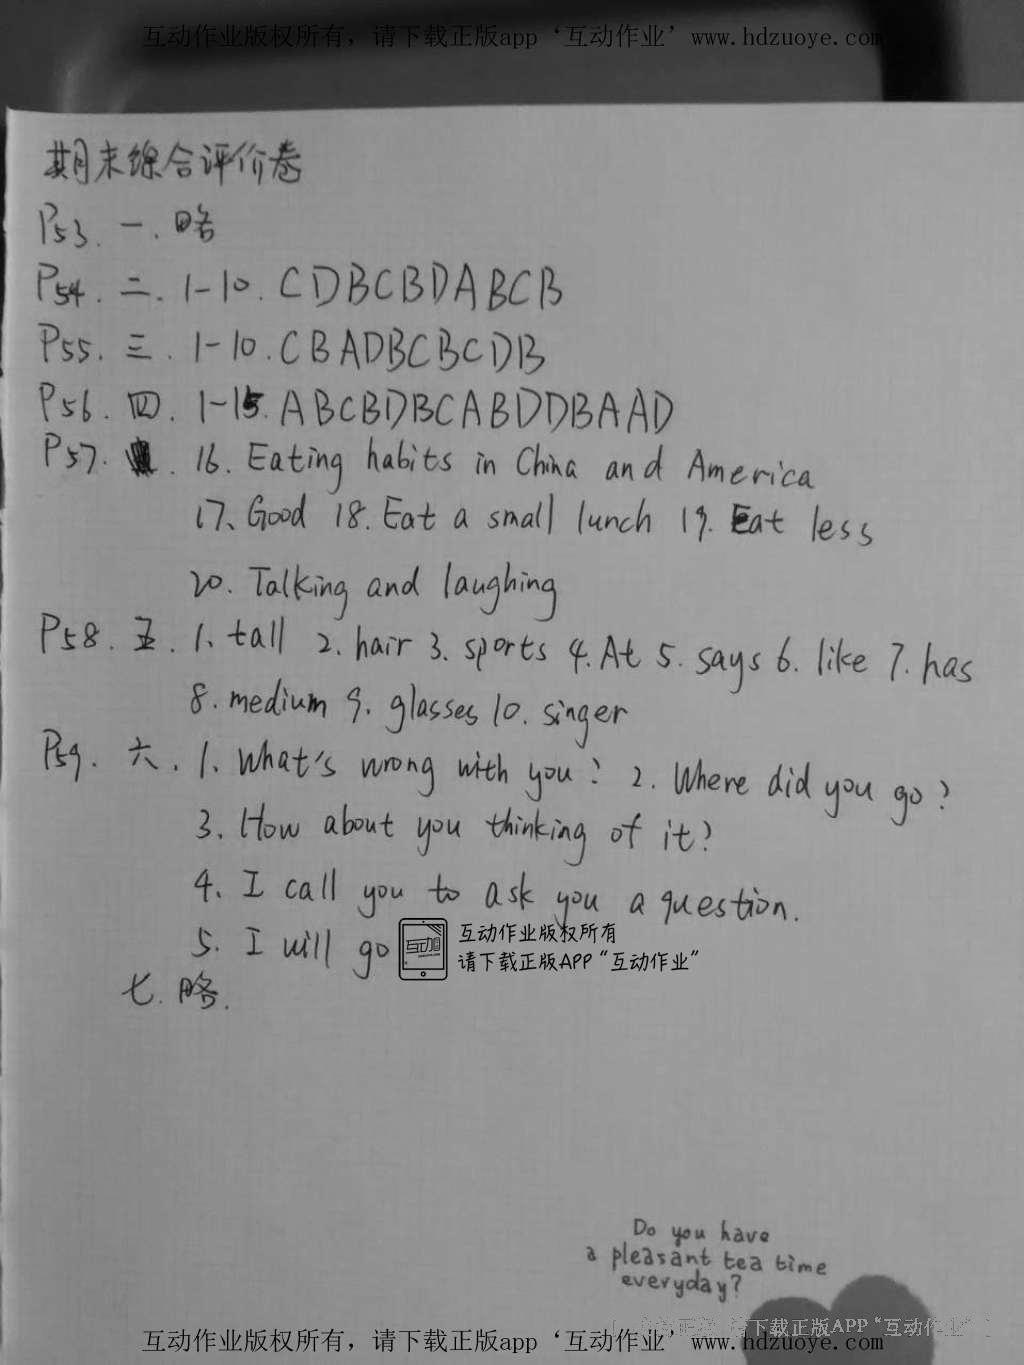 互动作业版权所有，请下载正版app‘互动作业’www.hdzuoye.com
期末综合评价卷
P53. 一. 略
P54. 二. 1-10. CDBCBDABCB
P55. 三. 1-10. CBADBCBCDB
P56. 四. 1-15. ABCBDBCABDDBAAD
P57. 16. Eating habits in China and America
17. Good 18. Eat a small lunch 19. Eat less
20. Talking and laughing
P58. 五. 1. tall 2. hair 3. sports 4. At 5. says 6. like 7. has
8. medium 9. glasses 10. singer
P59. 六. 1. What's wrong with you? 2. Where did you go?
3. How about you thinking of it?
4. I call you to ask you a question.
5. I will go
互动作业版权所有
请下载正版APP“互动作业”
七. 略.
Do you have
a pleasant tea time
everyday?
请下载正版APP“互动作业”
互动作业版权所有，请下载正版app‘互动作业’www.hdzuoye.com